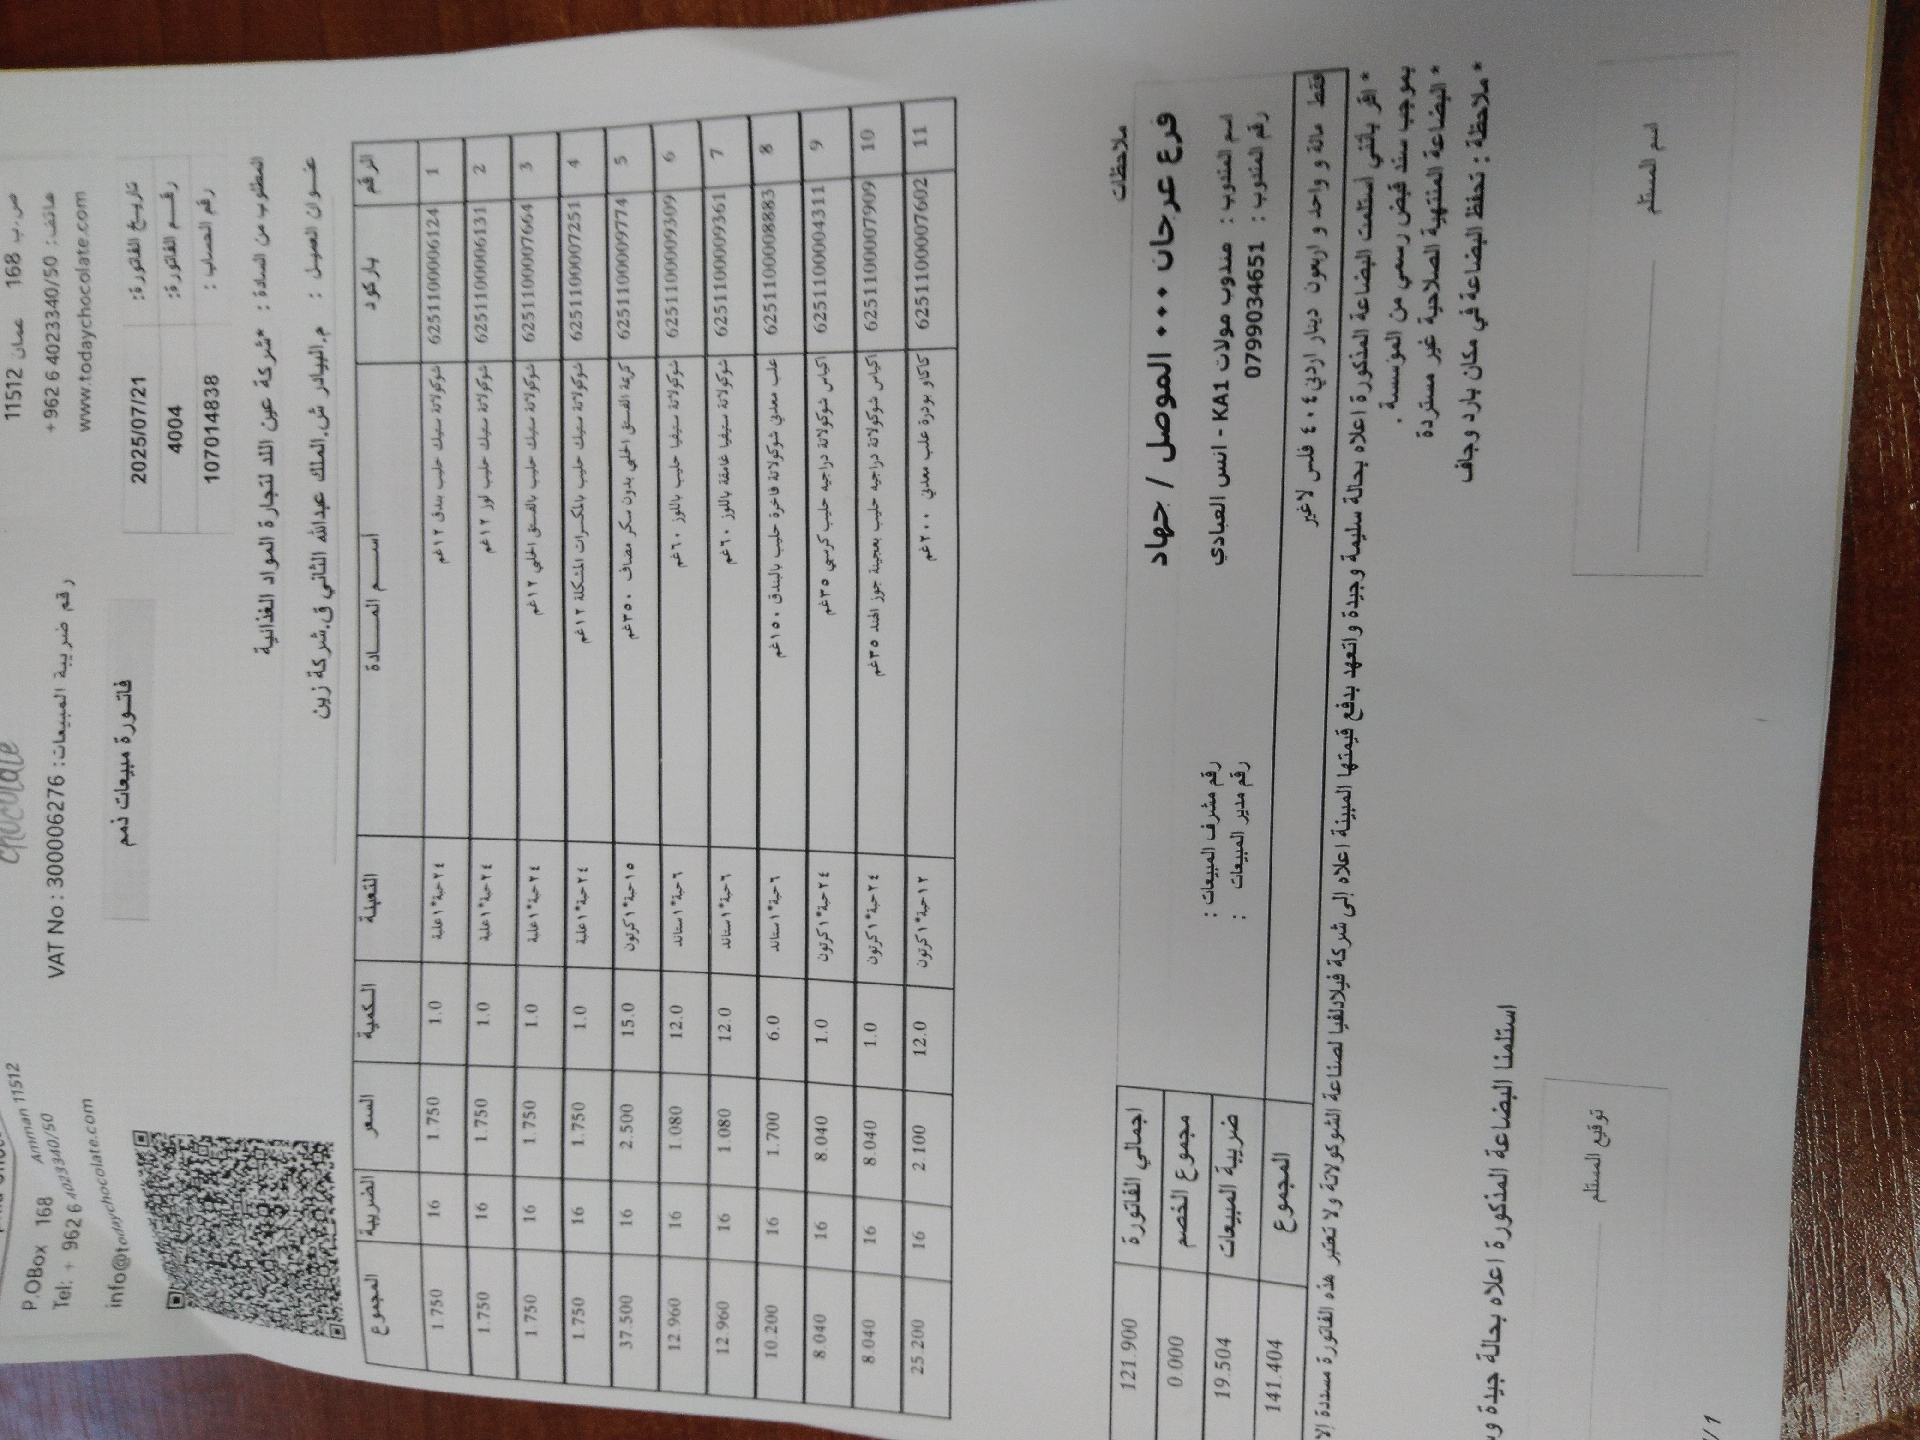 chocolate
P.OBox 168 Amman 11512
ص.ب 168 عمان 11512
Tel: + 962 6 4023340/50
هاتف: 962 6 4023340/50+
info@todaychocolate.com
www.todaychocolate.com
VAT No : 300006276 :رقم ضريبة المبيعات
فاتورة مبيعات ذمم
تاريخ الفاتورة: 2025/07/21
رقم الفاتورة: 4004
رقم الحساب : 107014838
المطلوب من السادة : *شركة عين اللد لتجارة المواد الغذائية
عنوان العميل : م.البيادر ش.الملك عبدالله الثاني ق.شركة زين
الرقم باركود اسم المادة التعبئة الكمية السعر الضريبة المجموع
1 6251100006124 شوكولاتة ستيك حليب بندق ١٢غم ٢٤حبة*١علبة 1.0 1.750 16 1.750
2 6251100006131 شوكولاتة ستيك حليب لوز ١٢غم ٢٤حبة*١علبة 1.0 1.750 16 1.750
3 6251100007664 شوكولاتة ستيك حليب بالفستق الحلبي ١٢غم ٢٤حبة*١علبة 1.0 1.750 16 1.750
4 6251100007251 شوكولاتة ستيك حليب بالمكسرات المشكلة ١٢غم ٢٤حبة*١علبة 1.0 1.750 16 1.750
5 6251100009774 كريمة الفستق الحلبي بدون سكر مضاف ٣٥٠غم ١٥حبة*١كرتون 15.0 2.500 16 37.500
6 6251100009309 شوكولاتة ستيفيا حليب باللوز ٦٠غم ٦حبة*١ستاند 12.0 1.080 16 12.960
7 6251100009361 شوكولاتة ستيفيا غامقة باللوز ٦٠غم ٦حبة*١ستاند 12.0 1.080 16 12.960
8 6251100008883 علب معدني شوكولاتة فاخرة حليب بالبندق ١٥٠غم ٦حبة*١ستاند 6.0 1.700 16 10.200
9 6251100004311 اكياس شوكولاتة دراجيه حليب كرسبي ٣٥غم ٢٤حبة*١كرتون 1.0 8.040 16 8.040
10 6251100007909 اكياس شوكولاتة دراجيه حليب بعجينة جوز الهند ٣٥غم ٢٤حبة*١كرتون 1.0 8.040 16 8.040
11 6251100007602 كاكاو بودرة علب معدني ٢٠٠غم ١٢حبة*١كرتون 12.0 2.100 16 25.200
ملاحظات
فرع عرجان ٠٠٠ الموصل / جهاد
اجمالي الفاتورة 121.900
مجموع الخصم 0.000
اسم المندوب : مندوب مولات KA1 - انس العبادي
رقم مشرف المبيعات :
ضريبة المبيعات 19.504
رقم المندوب : 0799034651
رقم مدير المبيعات :
المجموع 141.404
فقط مائة و واحد و اربعون دينار اردني ٤٠٤ فلس لاغير
* اقر بأنني أستلمت البضاعة المذكورة اعلاه بحالة سليمة وجيدة واتعهد بدفع قيمتها المبينة اعلاه إلى شركة فيلادلفيا لصناعة الشوكولاتة ولا تعتبر هذه الفاتورة مسددة إلا
بموجب سند قبض رسمي من المؤسسة .
* البضاعة المنتهية الصلاحية غير مستردة
* ملاحظة : تحفظ البضاعة في مكان بارد وجاف
استلمنا البضاعة المذكورة اعلاه بحالة جيدة و
اسم المستلم
توقيع المستلم
1 /